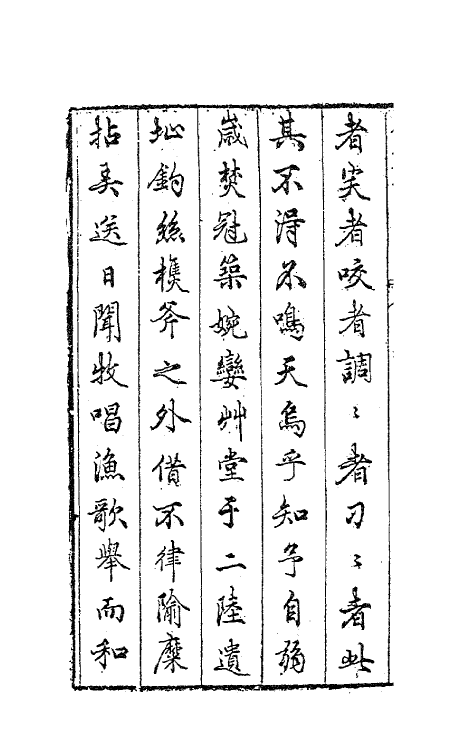 者宎者咬者調〻者刁〻者此
其不得不鳴天烏乎知予自弱
歲焚冠築婉孌艸堂于二陸遺
址釣絲樵斧之外借不律隃糜
拈弄送日聞牧唱漁歌舉而和